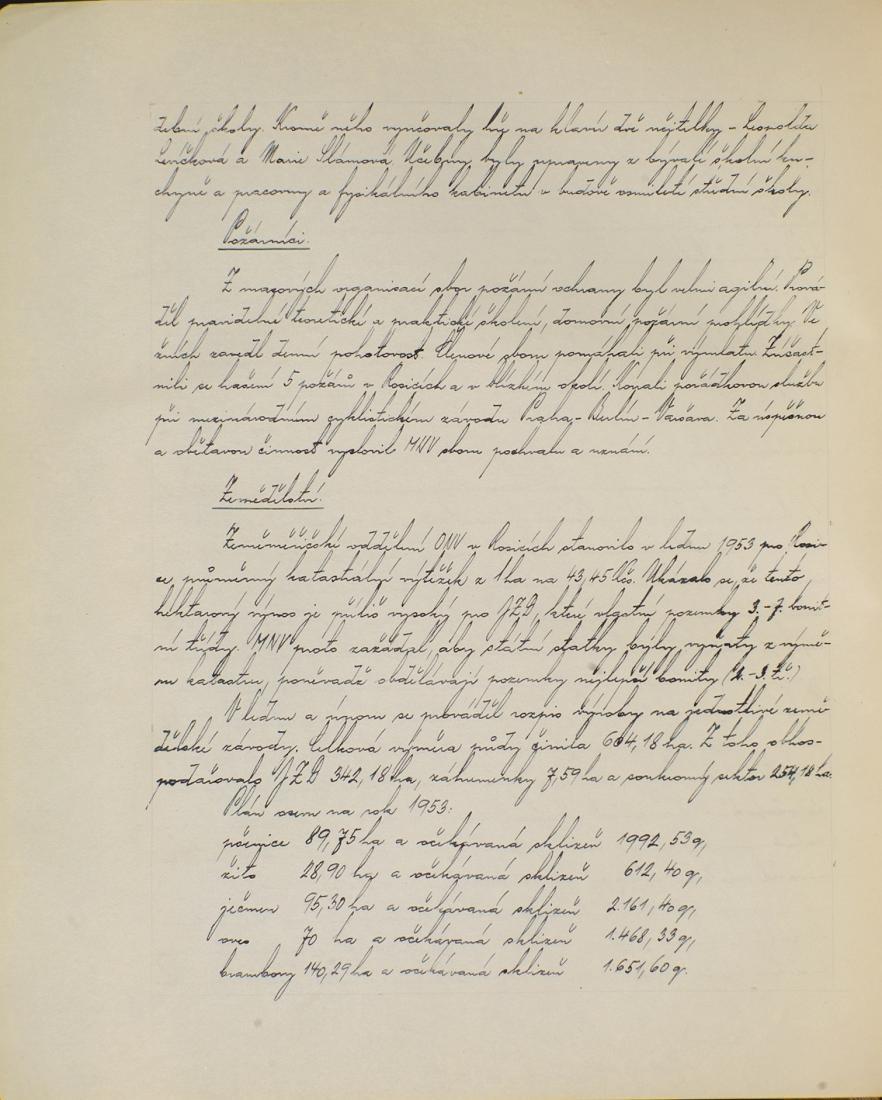 żební školy. Kromě něho vyučovaly hře na klavír dvě učitelky – Leopolda
Ševčíková a Marie Slámová. Učebny byly upraveny z bývalé školní ku-
chyně a pracovny a fysikálního kabinetu v budově osmileté střední školy.
Požárníci.
Z masových organisací sbor požární ochrany byl velmi agilní. Prová-
děl pravidelné teoretické a praktické školení, domovní požární prohlídky. Ve
žních zavedl denní pohotovost. Členové sboru pomáhali při výmlatu. Zúčast-
nili se hašení 5 požárů v Rosicích a v blízkém okolí. Konali pořádkovou službu
při mezinárodním cyklistickém závodu Praha – Berlín – Varšava. Za úspěšnou
a obětavou činnost vyslovil MNV sboru pochvalu a uznání.
Zemědělství.
Zeměměřičské oddělení ONV v Rosicích stanovilo v lednu 1953 pro Rosi-
ce průměrný katastrální výtěžek z 1 ha na 43,45 Kčs. Ukázalo se, že tento
hektarový výnos je příliš vysoký pro JZD, které vlastní pozemky 3.-7. bonit-
ní třídy. MNV proto zažádal, aby státní statky byly vyňaty z výmě-
ru katastru, poněvadž obdělávají pozemky nejlepší bonity (2.-3. tř.)
V lednu a únoru se prováděl rozpis výroby na jednotlivé země-
dělské závody. Celková výměra půdy činila 604,18 ha. Z toho obhos-
podařovalo JZD 342,18 ha, záhumenky 7,59 ha a soukromý sektor 254,18 ha.
Plán osevu na rok 1953:
pšenice 89,75 ha a očekávaná sklizeň 1992,53 q,
žito 28,90 ha a očekávaná sklizeň 612,40 q,
ječmen 95,30 ha a očekávaná sklizeň 2.161,40 q,
oves 70 ha a očekávaná sklizeň 1.468,33 q,
brambory 140,29 ha a očekávaná sklizeň 1.651,60 q.